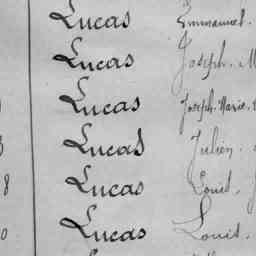 Lucas Emmanuel.
Lucas Joseph. M
Lucas Joseph. Marie.
Lucas Julien.
8 Lucas Louis.
0 Lucas Louis.